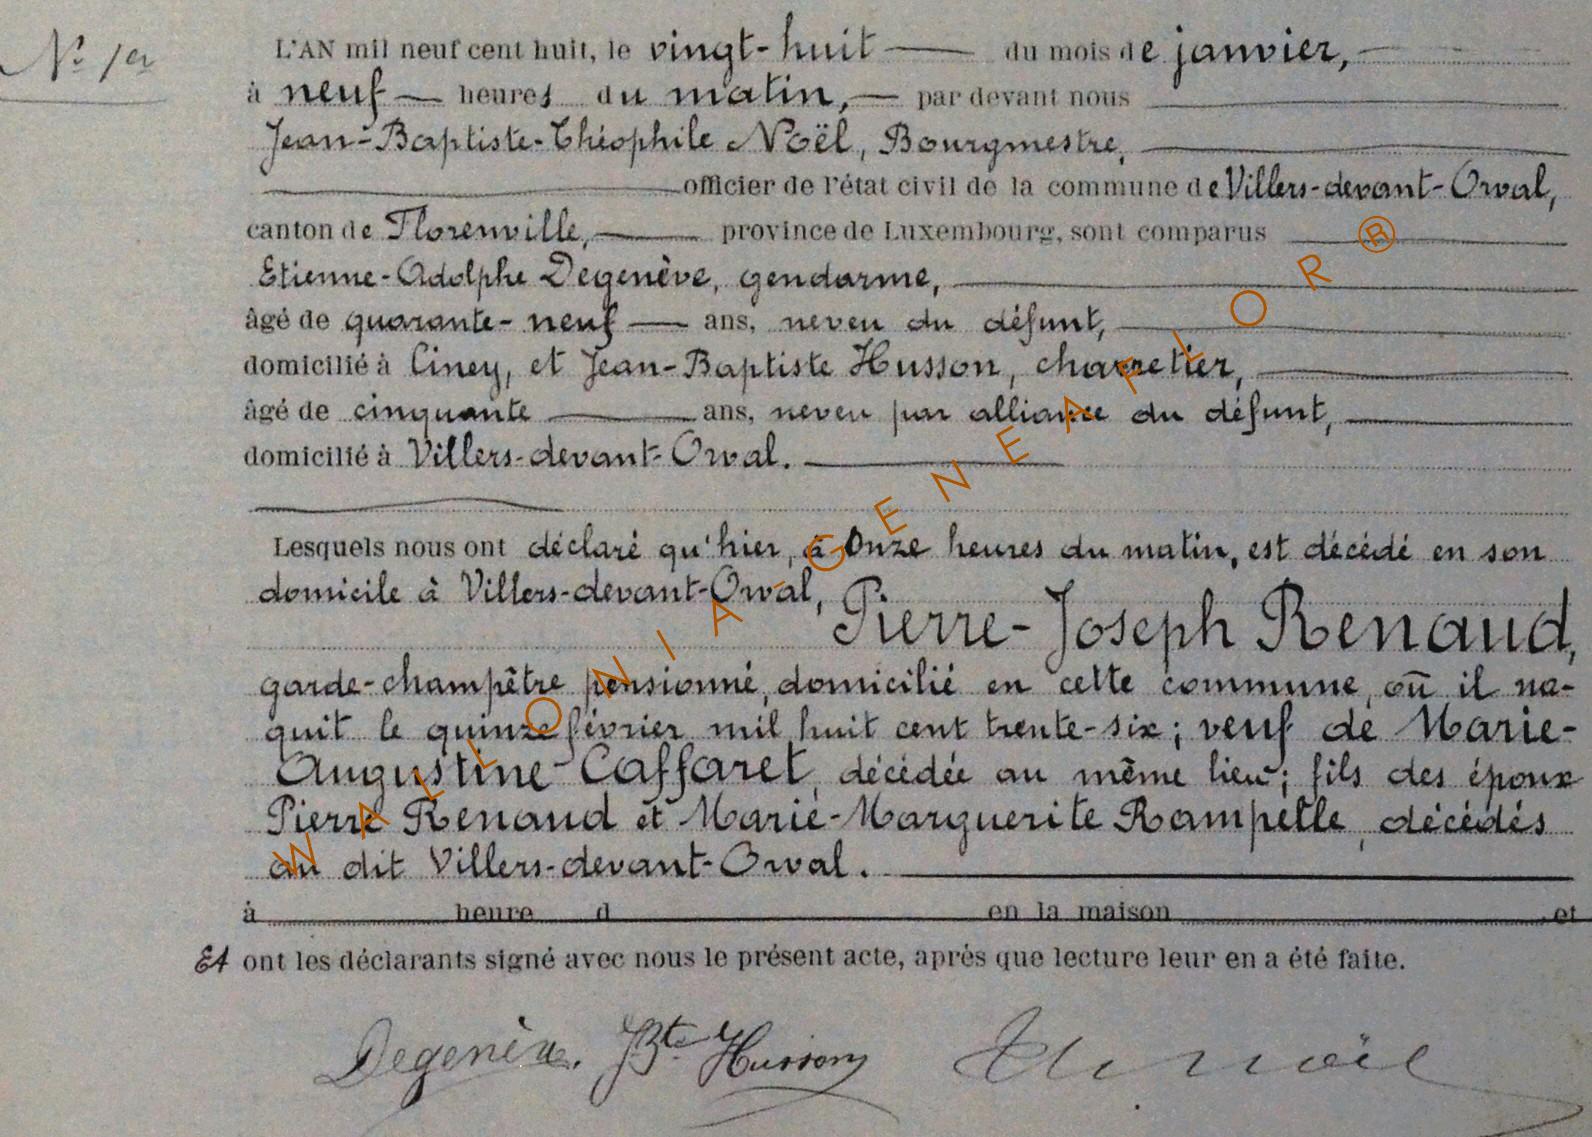 N° 1er
L'AN mil neuf cent huit, le vingt-huit du mois de janvier,
à neuf heures du matin, par devant nous
Jean-Baptiste-Théophile Noël, Bourgmestre,
officier de l'état civil de la commune de Villers-devant-Orval,
canton de Florenville, province de Luxembourg, sont comparus
Etienne-Adolphe Degenève, gendarme,
âgé de quarante-neuf ans, neveu du défunt,
domicilié à Ciney, et Jean-Baptiste Husson, charretier,
âgé de cinquante ans, neveu par alliance du défunt,
domicilié à Villers-devant-Orval.
Lesquels nous ont déclaré qu'hier, à onze heures du matin, est décédé en son
domicile à Villers-devant-Orval, Pierre-Joseph Renaud,
garde-champêtre pensionné, domicilié en cette commune, où il na-
quit le quinze février mil huit cent trente-six; veuf de Marie-
Augustine Caffaret, décédée au même lieu; fils des époux
Pierre Renaud et Marie-Marguerite Rampelle, décédés
au dit Villers-devant-Orval.
à heure d en la maison et
Et ont les déclarants signé avec nous le présent acte, après que lecture leur en a été faite.
Degenève. JBte Husson Th Noël
WALLONIA-GENEAFLOR®